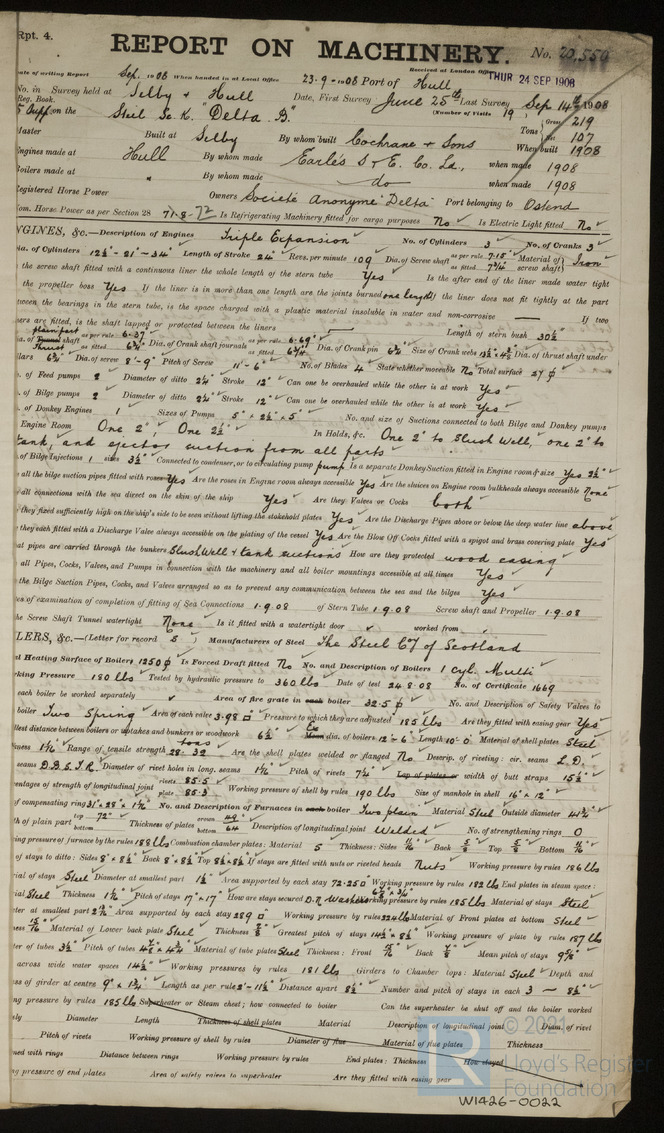 Rpt. 4.
REPORT ON MACHINERY. No. 20,550
Date of writing Report Sep. 1908 When handed in at Local Office 23-9-1908 Port of Hull Received at London Office THUR 24 SEP 1908
No. in Survey held at Selby & Hull Date, First Survey June 25th Last Survey Sep 14th 1908
Reg. Book. (Number of Visits 19)
5 Supp on the Steel Sc. K. "Delta B." Tons Gross 219 Net 107
Master Built at Selby By whom built Cochrane & Sons When built 1908
Engines made at Hull By whom made Earle's S & E. Co. Ld., when made 1908
Boilers made at " By whom made do when made 1908
Registered Horse Power Owners Societé Anonyme "Delta" Port belonging to Ostend
Nom. Horse Power as per Section 28 71.8-72 Is Refrigerating Machinery fitted for cargo purposes No Is Electric Light fitted No
NGINES, &c.—Description of Engines Triple Expansion No. of Cylinders 3 No. of Cranks 3
Dia. of Cylinders 12½"-21"-34" Length of Stroke 24" Revs. per minute 109 Dia. of Screw shaft as per rule 7.15" as fitted 7¾" Material of screw shaft Iron
the screw shaft fitted with a continuous liner the whole length of the stern tube Yes Is the after end of the liner made water tight
the propeller boss Yes If the liner is in more than one length are the joints burned one length If the liner does not fit tightly at the part
ween the bearings in the stern tube, is the space charged with a plastic material insoluble in water and non-corrosive — If two
ners are fitted, is the shaft lapped or protected between the liners — Length of stern bush 30½"
ia. of Tunnel shaft plain part Thrust as per rule 6.37" as fitted 6¾" Dia. of Crank shaft journals as per rule 6.69" as fitted 6¾" Dia. of Crank pin 6¾" Size of Crank webs 13½"×4½" Dia. of thrust shaft under
llars 6¾" Dia. of screw 8'-9" Pitch of Screw 11'-6" No. of Blades 4 State whether moveable No Total surface 27 ф
o. of Feed pumps 2 Diameter of ditto 2¼" Stroke 12" Can one be overhauled while the other is at work Yes
o. of Bilge pumps 2 Diameter of ditto 2¼" Stroke 12" Can one be overhauled while the other is at work Yes
o. of Donkey Engines 1 Sizes of Pumps 5" × 2½" × 5" No. and size of Suctions connected to both Bilge and Donkey pumps
Engine Room One 2", One 2½" In Holds, &c. One 2" to Slush Well, one 2" to
tank, and ejector suction from all parts
of Bilge Injections 1 sizes 3½" Connected to condenser, or to circulating pump pump Is a separate Donkey Suction fitted in Engine room & size Yes 2½"
all the bilge suction pipes fitted with roses Yes Are the roses in Engine room always accessible Yes Are the sluices on Engine room bulkheads always accessible None
all connections with the sea direct on the skin of the ship Yes Are they Valves or Cocks both
they fixed sufficiently high on the ship's side to be seen without lifting the stokehold plates Yes Are the Discharge Pipes above or below the deep water line above
they each fitted with a Discharge Valve always accessible on the plating of the vessel Yes Are the Blow Off Cocks fitted with a spigot and brass covering plate Yes
at pipes are carried through the bunkers Slush Well & tank suctions How are they protected wood casing
all Pipes, Cocks, Valves, and Pumps in connection with the machinery and all boiler mountings accessible at all times Yes
the Bilge Suction Pipes, Cocks, and Valves arranged so as to prevent any communication between the sea and the bilges Yes
tes of examination of completion of fitting of Sea Connections 1.9.08 of Stern Tube 1.9.08 Screw shaft and Propeller 1.9.08
he Screw Shaft Tunnel watertight None Is it fitted with a watertight door worked from
LERS, &c.—(Letter for record S) Manufacturers of Steel The Steel Coy of Scotland
al Heating Surface of Boilers 1250 ф Is Forced Draft fitted No No. and Description of Boilers 1 Cyl. Multi
rking Pressure 180 lbs Tested by hydraulic pressure to 360 lbs Date of test 24.8.08 No. of Certificate 1669
each boiler be worked separately Area of fire grate in each boiler 32.5 ф No. and Description of Safety Valves to
boiler Two Spring Area of each valve 3.98 □" Pressure to which they are adjusted 185 lbs Are they fitted with easing gear Yes
llest distance between boilers or uptakes and bunkers or woodwork 6½" Ex Mean dia. of boilers 12'-6" Length 10'-0" Material of shell plates Steel
kness 1 1/16" Range of tensile strength 28-32 tons Are the shell plates welded or flanged No Descrip. of riveting: cir. seams L.D.
seams D.B.S.T.R. Diameter of rivet holes in long. seams 1 1/16" Pitch of rivets 7¼" Lap of plates or width of butt straps 15½"
entages of strength of longitudinal joint rivets 85.5 plate 85.3 Working pressure of shell by rules 190 lbs Size of manhole in shell 16" × 12"
of compensating ring 31" × 28" × 1 1/16" No. and Description of Furnaces in each boiler Two plain Material Steel Outside diameter 41¾"
th of plain part top 72" bottom Thickness of plates crown 49 bottom 64 Description of longitudinal joint Welded No. of strengthening rings 0
ing pressure of furnace by the rules 188 lbs Combustion chamber plates: Material S Thickness: Sides 11/16" Back 5/8" Top 5/8" Bottom 11/16"
of stays to ditto: Sides 8" × 8½" Back 8" × 8½" Top 8½" × 8½" If stays are fitted with nuts or riveted heads Nuts Working pressure by rules 186 lbs
ial of stays Steel Diameter at smallest part 1½" Area supported by each stay 72.25 □" Working pressure by rules 182 lbs End plates in steam space:
rial Steel Thickness 1 1/16" Pitch of stays 17" × 17" How are stays secured D.N. Washers 6¾" × 3/4" Working pressure by rules 185 lbs Material of stays Steel
ter at smallest part Area supported by each stay 289 □" Working pressure by rules 224 lbs Material of Front plates at bottom Steel
ness 15/16" Material of Lower back plate Steel Thickness 7/8" Greatest pitch of stays 14½" × 8½" Working pressure of plate by rules 187 lbs
ter of tubes 3½" Pitch of tubes 4 7/8" × 4¾" Material of tube plates Steel Thickness: Front 15/16" Back 7/8" Mean pitch of stays 9 5/8"
across wide water spaces 14½" Working pressures by rules 181 lbs Girders to Chamber tops: Material Steel Depth and
ss of girder at centre 9" × 1¾" Length as per rule 2'-11½" Distance apart 8½" Number and pitch of stays in each 3 - 8½"
ng pressure by rules 185 lbs Superheater or Steam chest; how connected to boiler Can the superheater be shut off and the boiler worked
ely Diameter Length Thickness of shell plates Material Description of longitudinal joint Diam. of rivet
Pitch of rivets Working pressure of shell by rules Diameter of flue Material of flue plates Thickness
ned with rings Distance between rings Working pressure by rules End plates: Thickness How stayed
ng pressure of end plates Area of safety valves to superheater Are they fitted with easing gear
© 2021
LR
Lloyd's Register
Foundation
W1426-0022